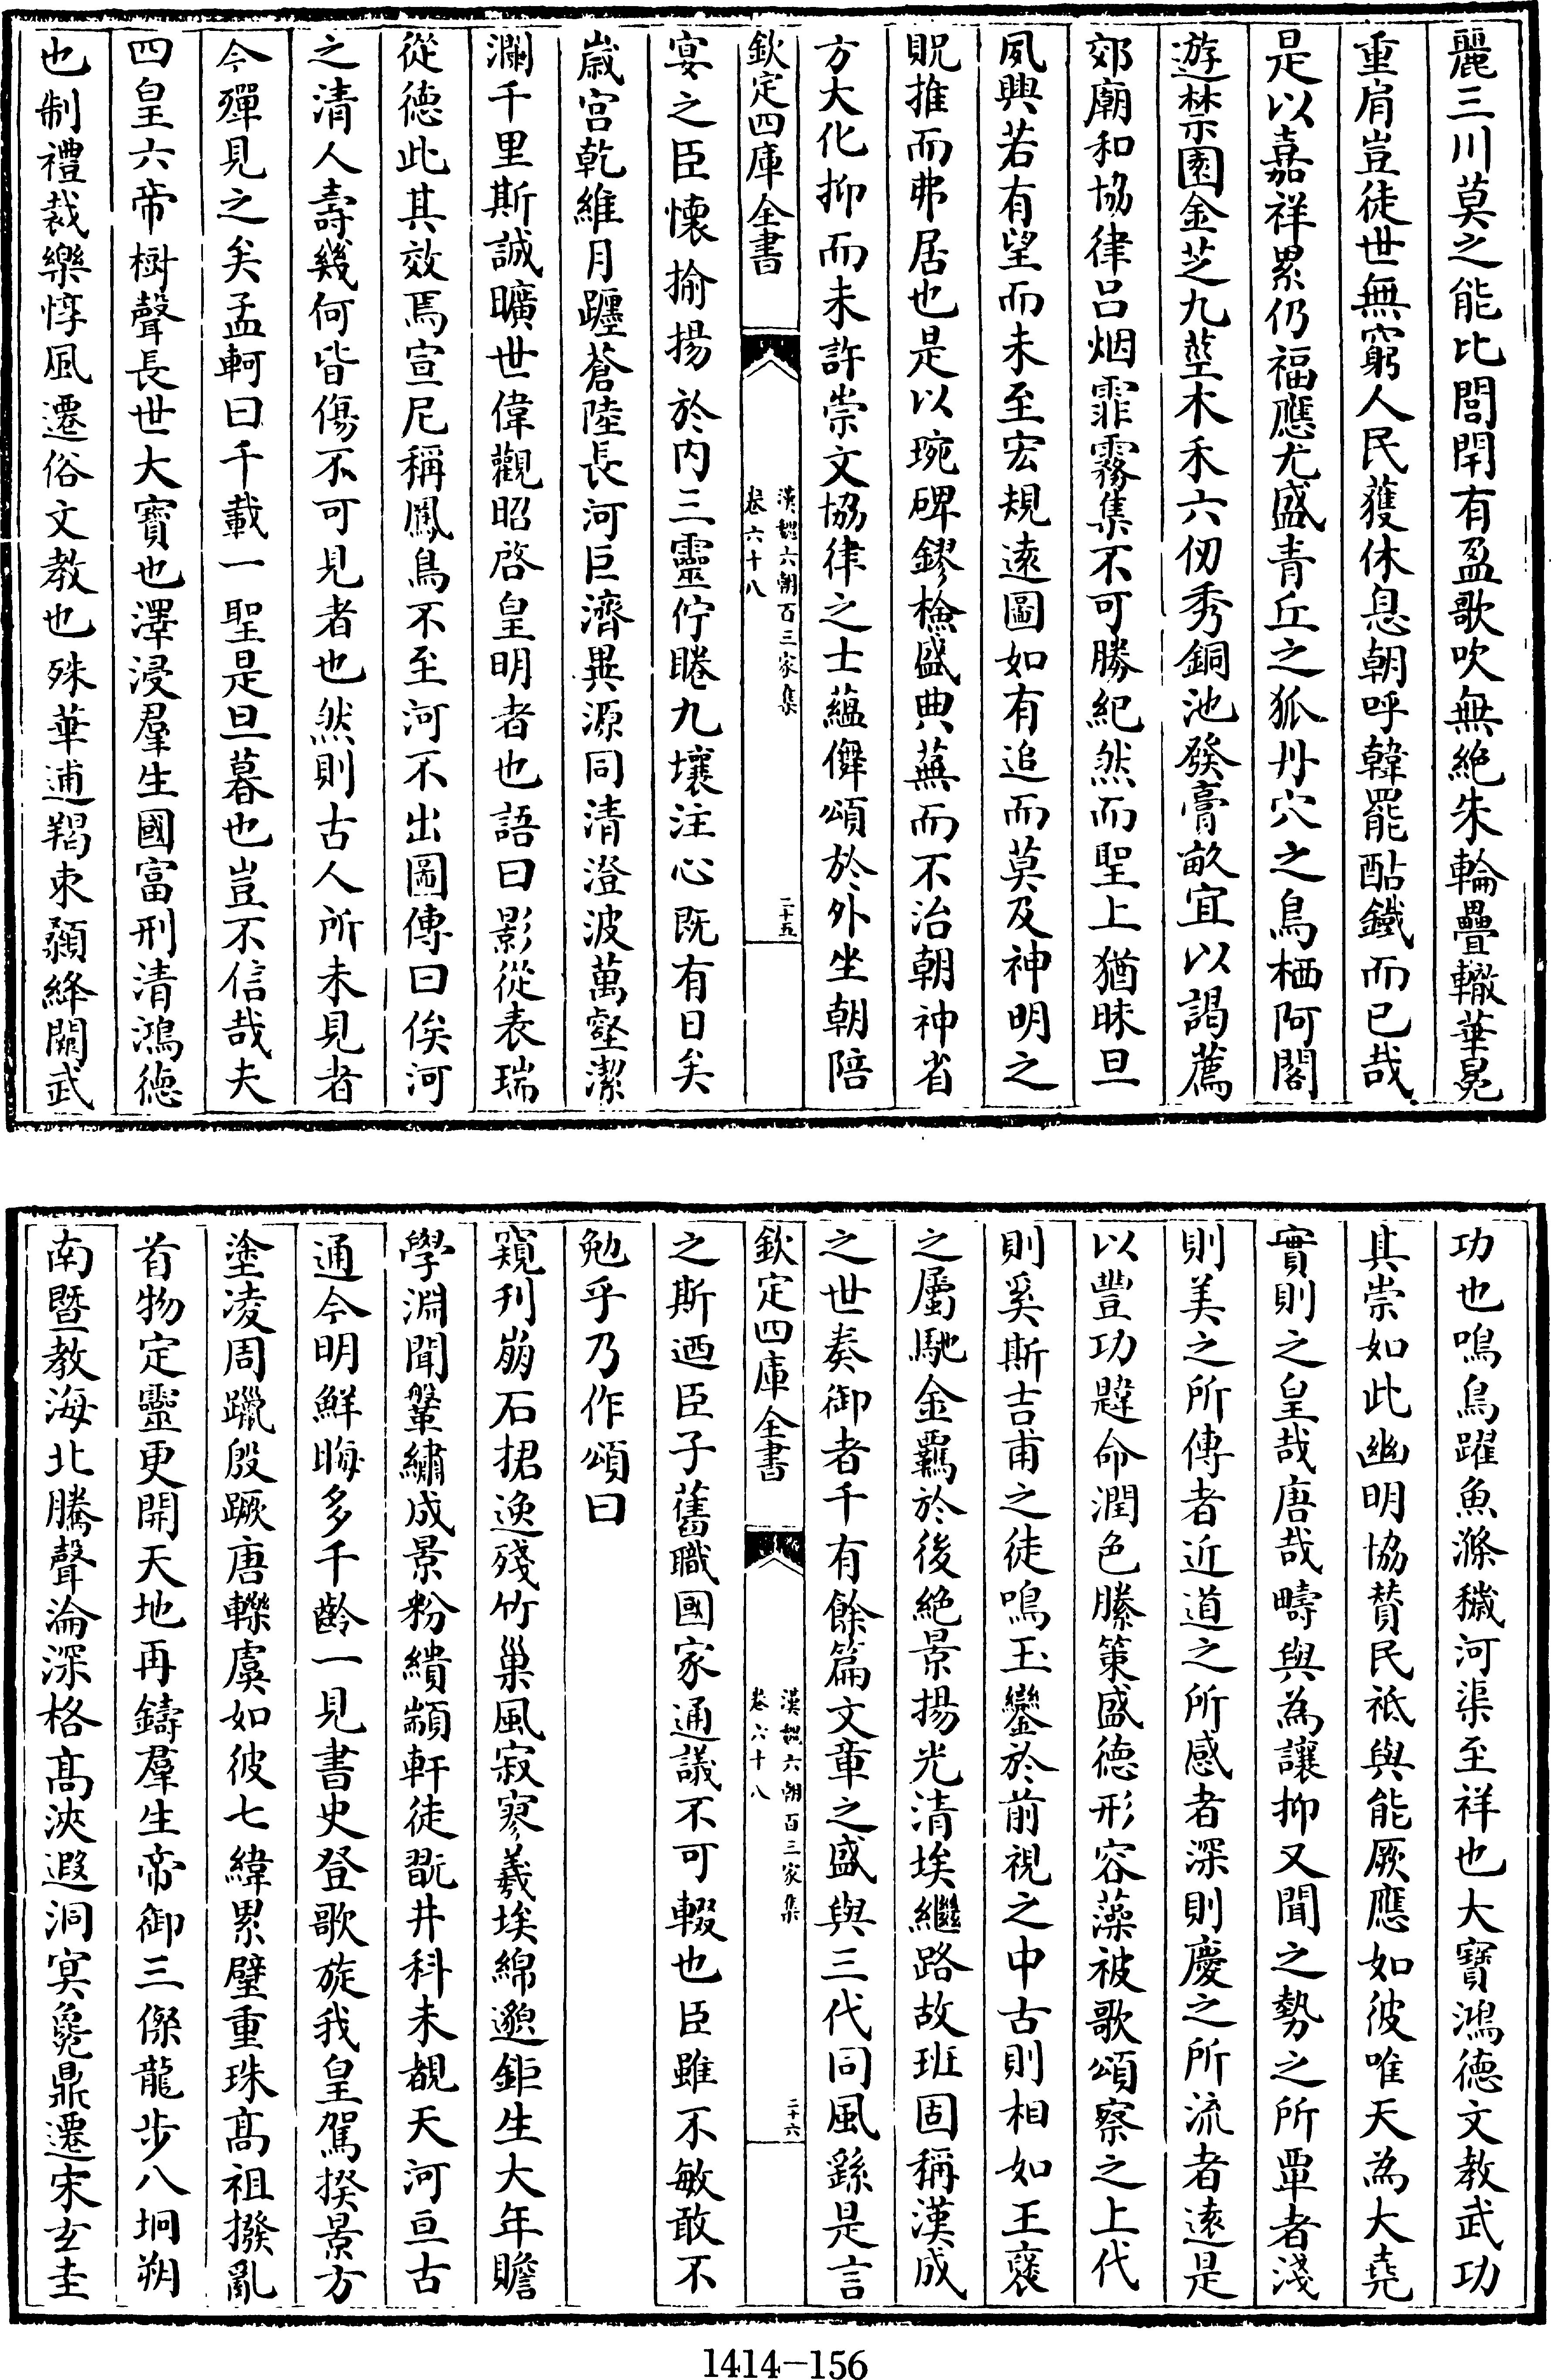 麗三川莫之能比閭閈有盈歌吹無絶朱輪疊轍華冕
重肩豈徒世無窮人民獲休息朝呼韓罷酤鐵而已哉
是以嘉祥累仍福應尤盛青丘之狐丹穴之鳥栖阿閣
遊禁園金芝九莖木禾六仞秀銅池發膏畝宜以謁薦
郊廟和協律呂烟霏霧集不可勝紀然而聖上猶昧旦
夙興若有望而未至宏規遠圖如有追而莫及神明之
貺推而弗居也是以琬碑鏐檢盛典蕪而不治朝神省
方大化抑而未許崇文協律之士蘊儛頌於外坐朝陪
欽定四庫全書
漢魏六朝百三家集
卷六十八
二十五
宴之臣懷揄揚於内三靈佇睠九壤注心既有日矣
嵗宫乾維月躔蒼陸長河巨濟異源同清澄波萬壑潔
瀾千里斯誠曠世偉觀昭啓皇明者也語曰影從表瑞
從德此其效焉宣尼稱鳳鳥不至河不出圖傳曰俟河
之清人壽幾何皆傷不可見者也然則古人所未見者
今殫見之矣孟軻曰千載一聖是旦暮也豈不信哉夫
四皇六帝樹聲長世大寶也澤浸羣生國富刑清鴻德
也制禮裁樂惇風遷俗文教也殊華逋羯束顙絳闕武
功也鳴鳥躍魚滌穢河渠至祥也大寶鴻德文教武功
其崇如此幽明協賛民祗與能厥應如彼唯天為大堯
實則之皇哉唐哉疇與為讓抑又聞之勢之所覃者淺
則美之所傳者近道之所感者深則慶之所流者遠是
以豐功韙命潤色縢策盛德形容藻被歌頌察之上代
則奚斯吉甫之徒鳴玉鑾於前視之中古則相如王襃
之屬馳金羈於後絶景揚光清埃繼路故班固稱漢成
之世奏御者千有餘篇文章之盛與三代同風繇是言
欽定四庫全書
漢魏六朝百三家集
卷六十八
二十六
之斯迺臣子舊職國家通議不可輟也臣雖不敏敢不
勉乎乃作頌曰
窺刋崩石捃逸殘竹巢風寂寥羲埃綿邈鉅生大年贍
學淵聞鞶繡成景粉繢顓軒徒翫井科未覩天河亘古
通今明鮮晦多千齡一見書史登歌旋我皇駕揆景方
塗凌周躐殷蹶唐轢虞如彼七緯累璧重珠髙祖撥亂
首物定靈更開天地再鑄羣生帝御三傑龍步八坰朔
南暨教海北騰聲淪深格髙浹遐洞㝠夐鼎遷宋玄圭
1414-156